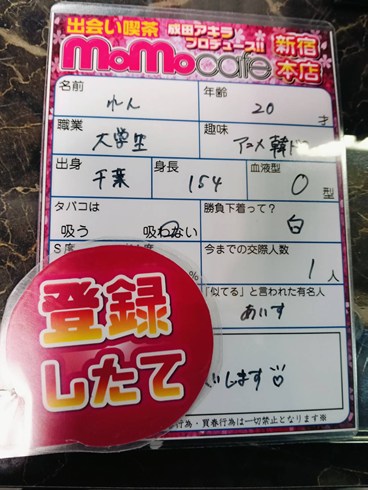 出会い喫茶 成田アキラ プロデュース!! 新宿本店
MoMocafe
名前 れん 年齢 20 才
職業 大学生 趣味 アニメ 韓ドラ
出身 千葉 身長 154 血液型 O 型
タバコは 吸う 吸わない 勝負下着って? 白
S度 %
今までの交際人数 1 人
「似てる」と言われた有名人
あいす
登録
したて
します♡
行為・買春行為は一切禁止となります※